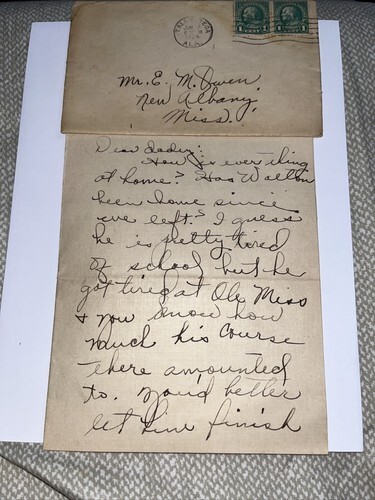 ALA.
Mr. E. M. Owen,
New Albany,
Miss.
Dear dader:
How is everything
at home? Has Walton
been home since
we left? I guess
he is pretty tired
of school but he
got tired at Ole Miss
& you know how
much his course
there amounted
to. you'd better
let him finish